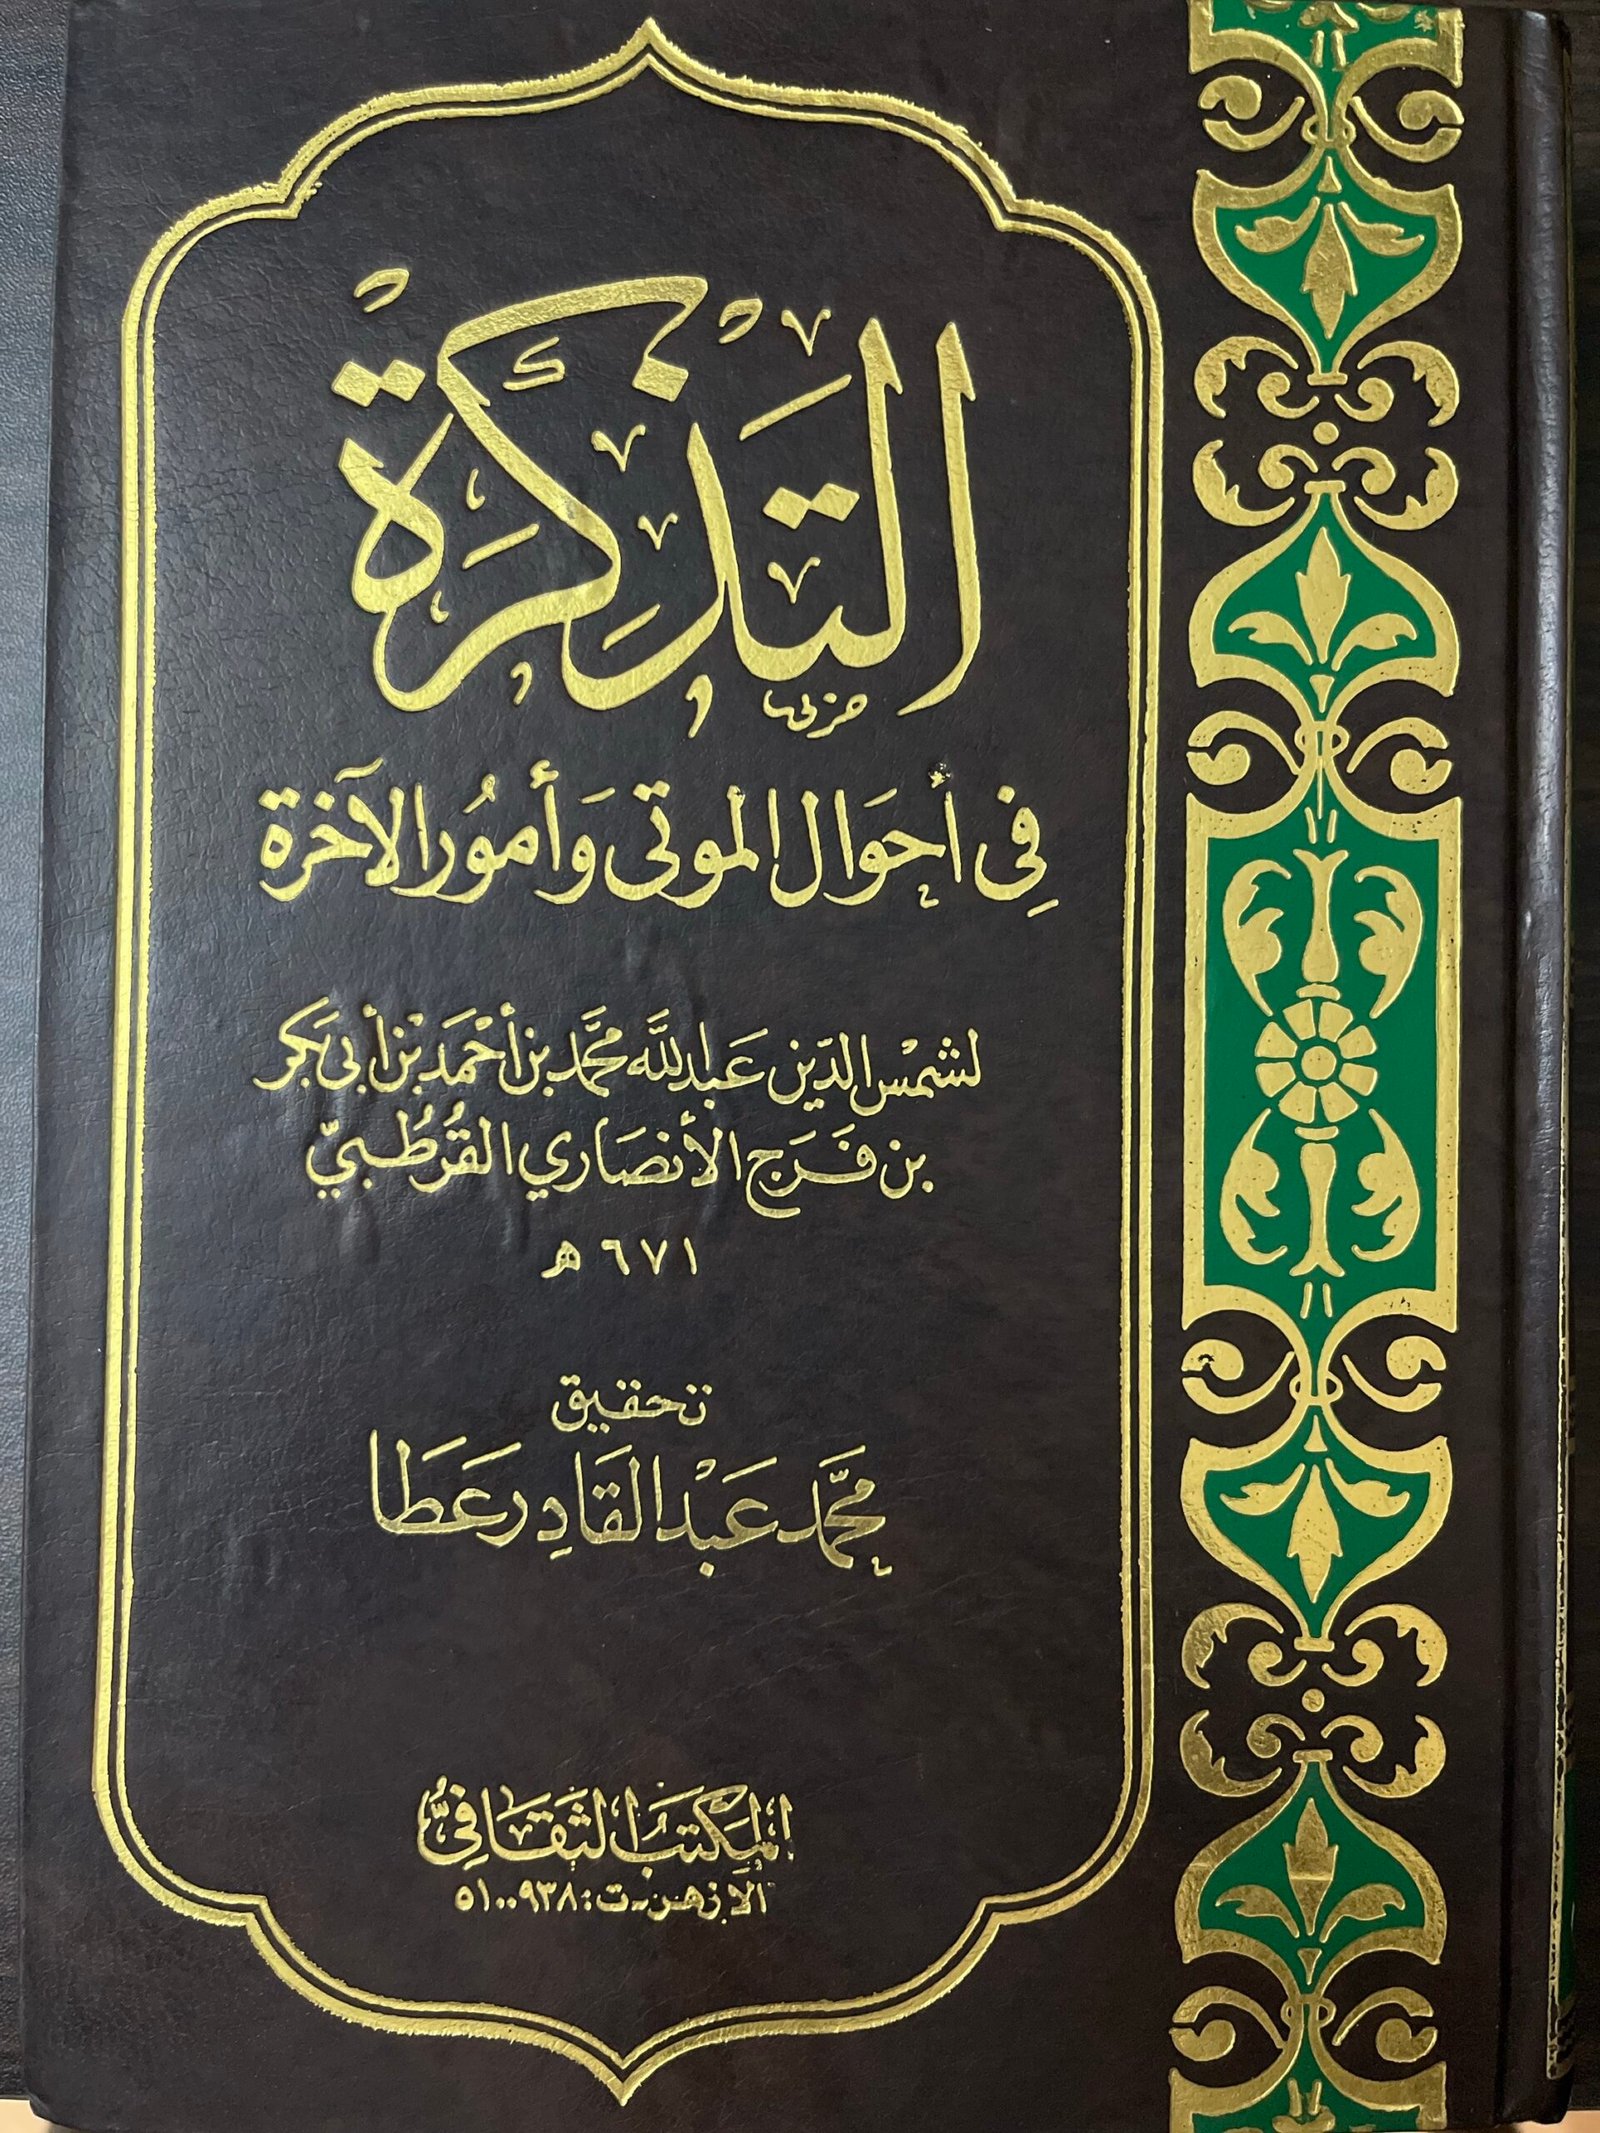 التَّذْكِرَةُ
فِي أحوَال الموتى وَأمُور الآخرة
لشمْس الدّين عَبد اللَّه محمَّد بن أحْمَد بْن أبي بَكر
بن فَرَج الأنصَاري القُرطُبيّ
٦٧١ هـ
تحقيق
محمَّد عَبْد القَادِر عَطَا
المكتَبُ الثقَافيُّ
الأزهر - ت : ٥١٠٠٩٣٨